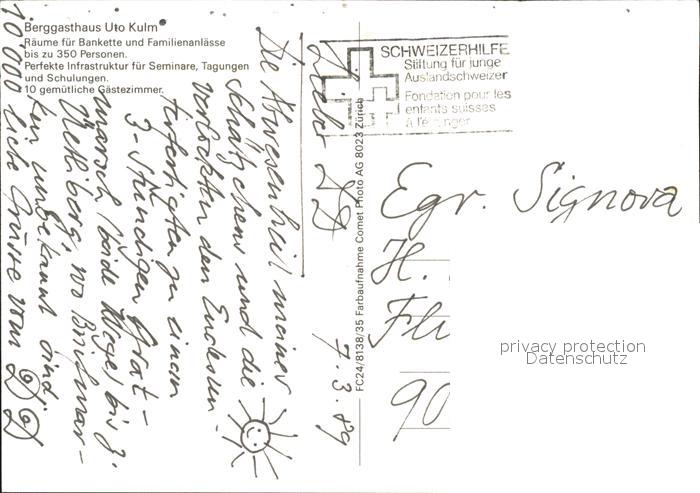 Berggasthaus Uto Kulm
Räume für Bankette und Familienanlässe
bis zu 350 Personen.
Perfekte Infrastruktur für Seminare, Tagungen
und Schulungen.
10 gemütliche Gästezimmer.
SCHWEIZERHILFE
Stiftung für junge
Auslandschweizer
Fondation pour les
enfants suisses
à l'étranger
FC24/8138/35 Farbaufnahme Comet Photo AG 8023 Zürich
7.3.89
Die Abwesenheit meiner
Schätzchens und die
verlockten den
zu einem
3-stündigen
marsch (beide Wege) bis z.
Uetliberg, wo Briefmar-
ken unbekannt sind!
10'000 liebe Grüsse vom
Egr. Signora
H.
90
privacy protection
Datenschutz